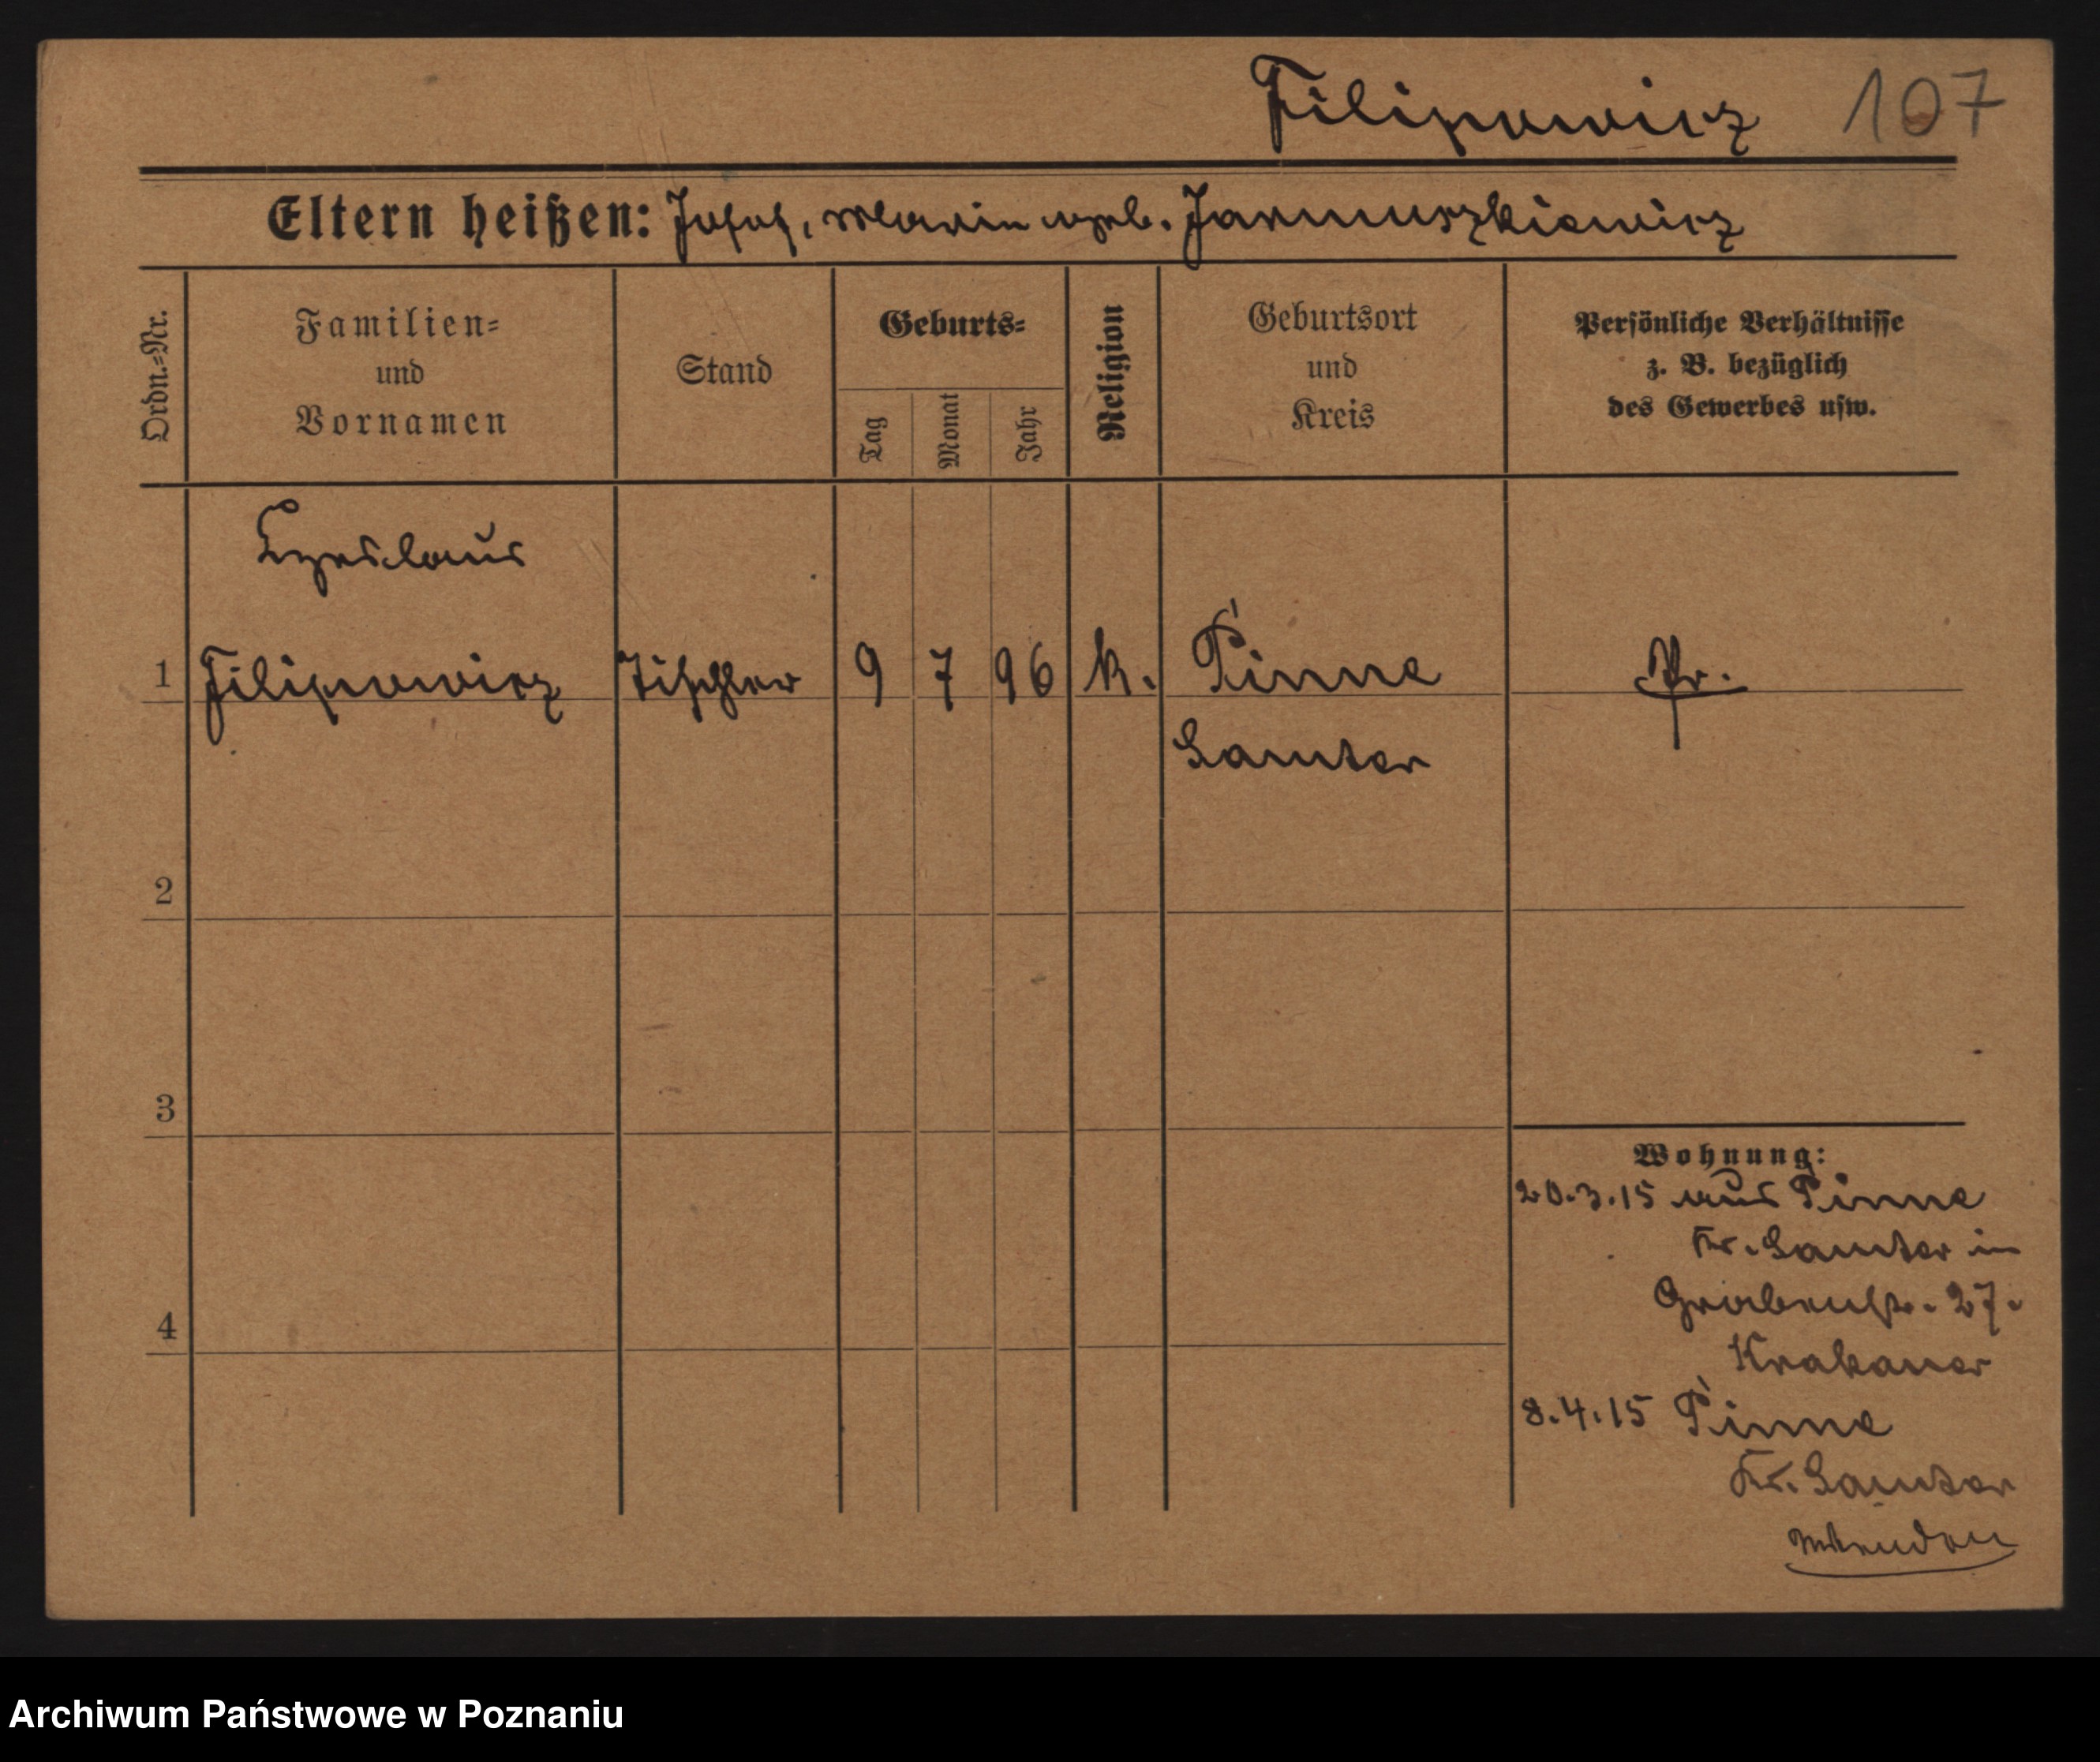 Filipowicz 107
Eltern heißen: Josef, Maria geb. Jarmuszkiewicz
Ordn.-Nr.
Familien-
und
Vornamen
Stand
Geburts-
Tag
Monat
Jahr
Religion
Geburtsort
und
Kreis
Persönliche Verhältnisse
z. B. bezüglich
des Gewerbes usw.
Czeslaus
1 Filipowicz Tischler 9 7 96 k. Pinne Pr.
Samter
2
3
4
Wohnung:
20.3.15 aus Pinne
Kr. Samter in
Grabenstr. 27.
Krakauer
8.4.15 Pinne
Kr. Samter
Archiwum Państwowe w Poznaniu